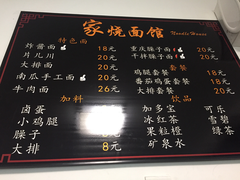 家烧面馆 Noodle House
特色面
炸酱面 18元
片儿川 20元
大排面 20元
南瓜手工面 20元
牛肉面 26元
加料
卤蛋
小鸡腿
臊子
大排 8元
重庆臊子面 20元
干拌臊子面 20元
套餐
鸡腿套餐
番茄鸡蛋套餐
大排套餐
饮品
加多宝 可乐
冰红茶 雪碧
果粒橙 绿茶
矿泉水